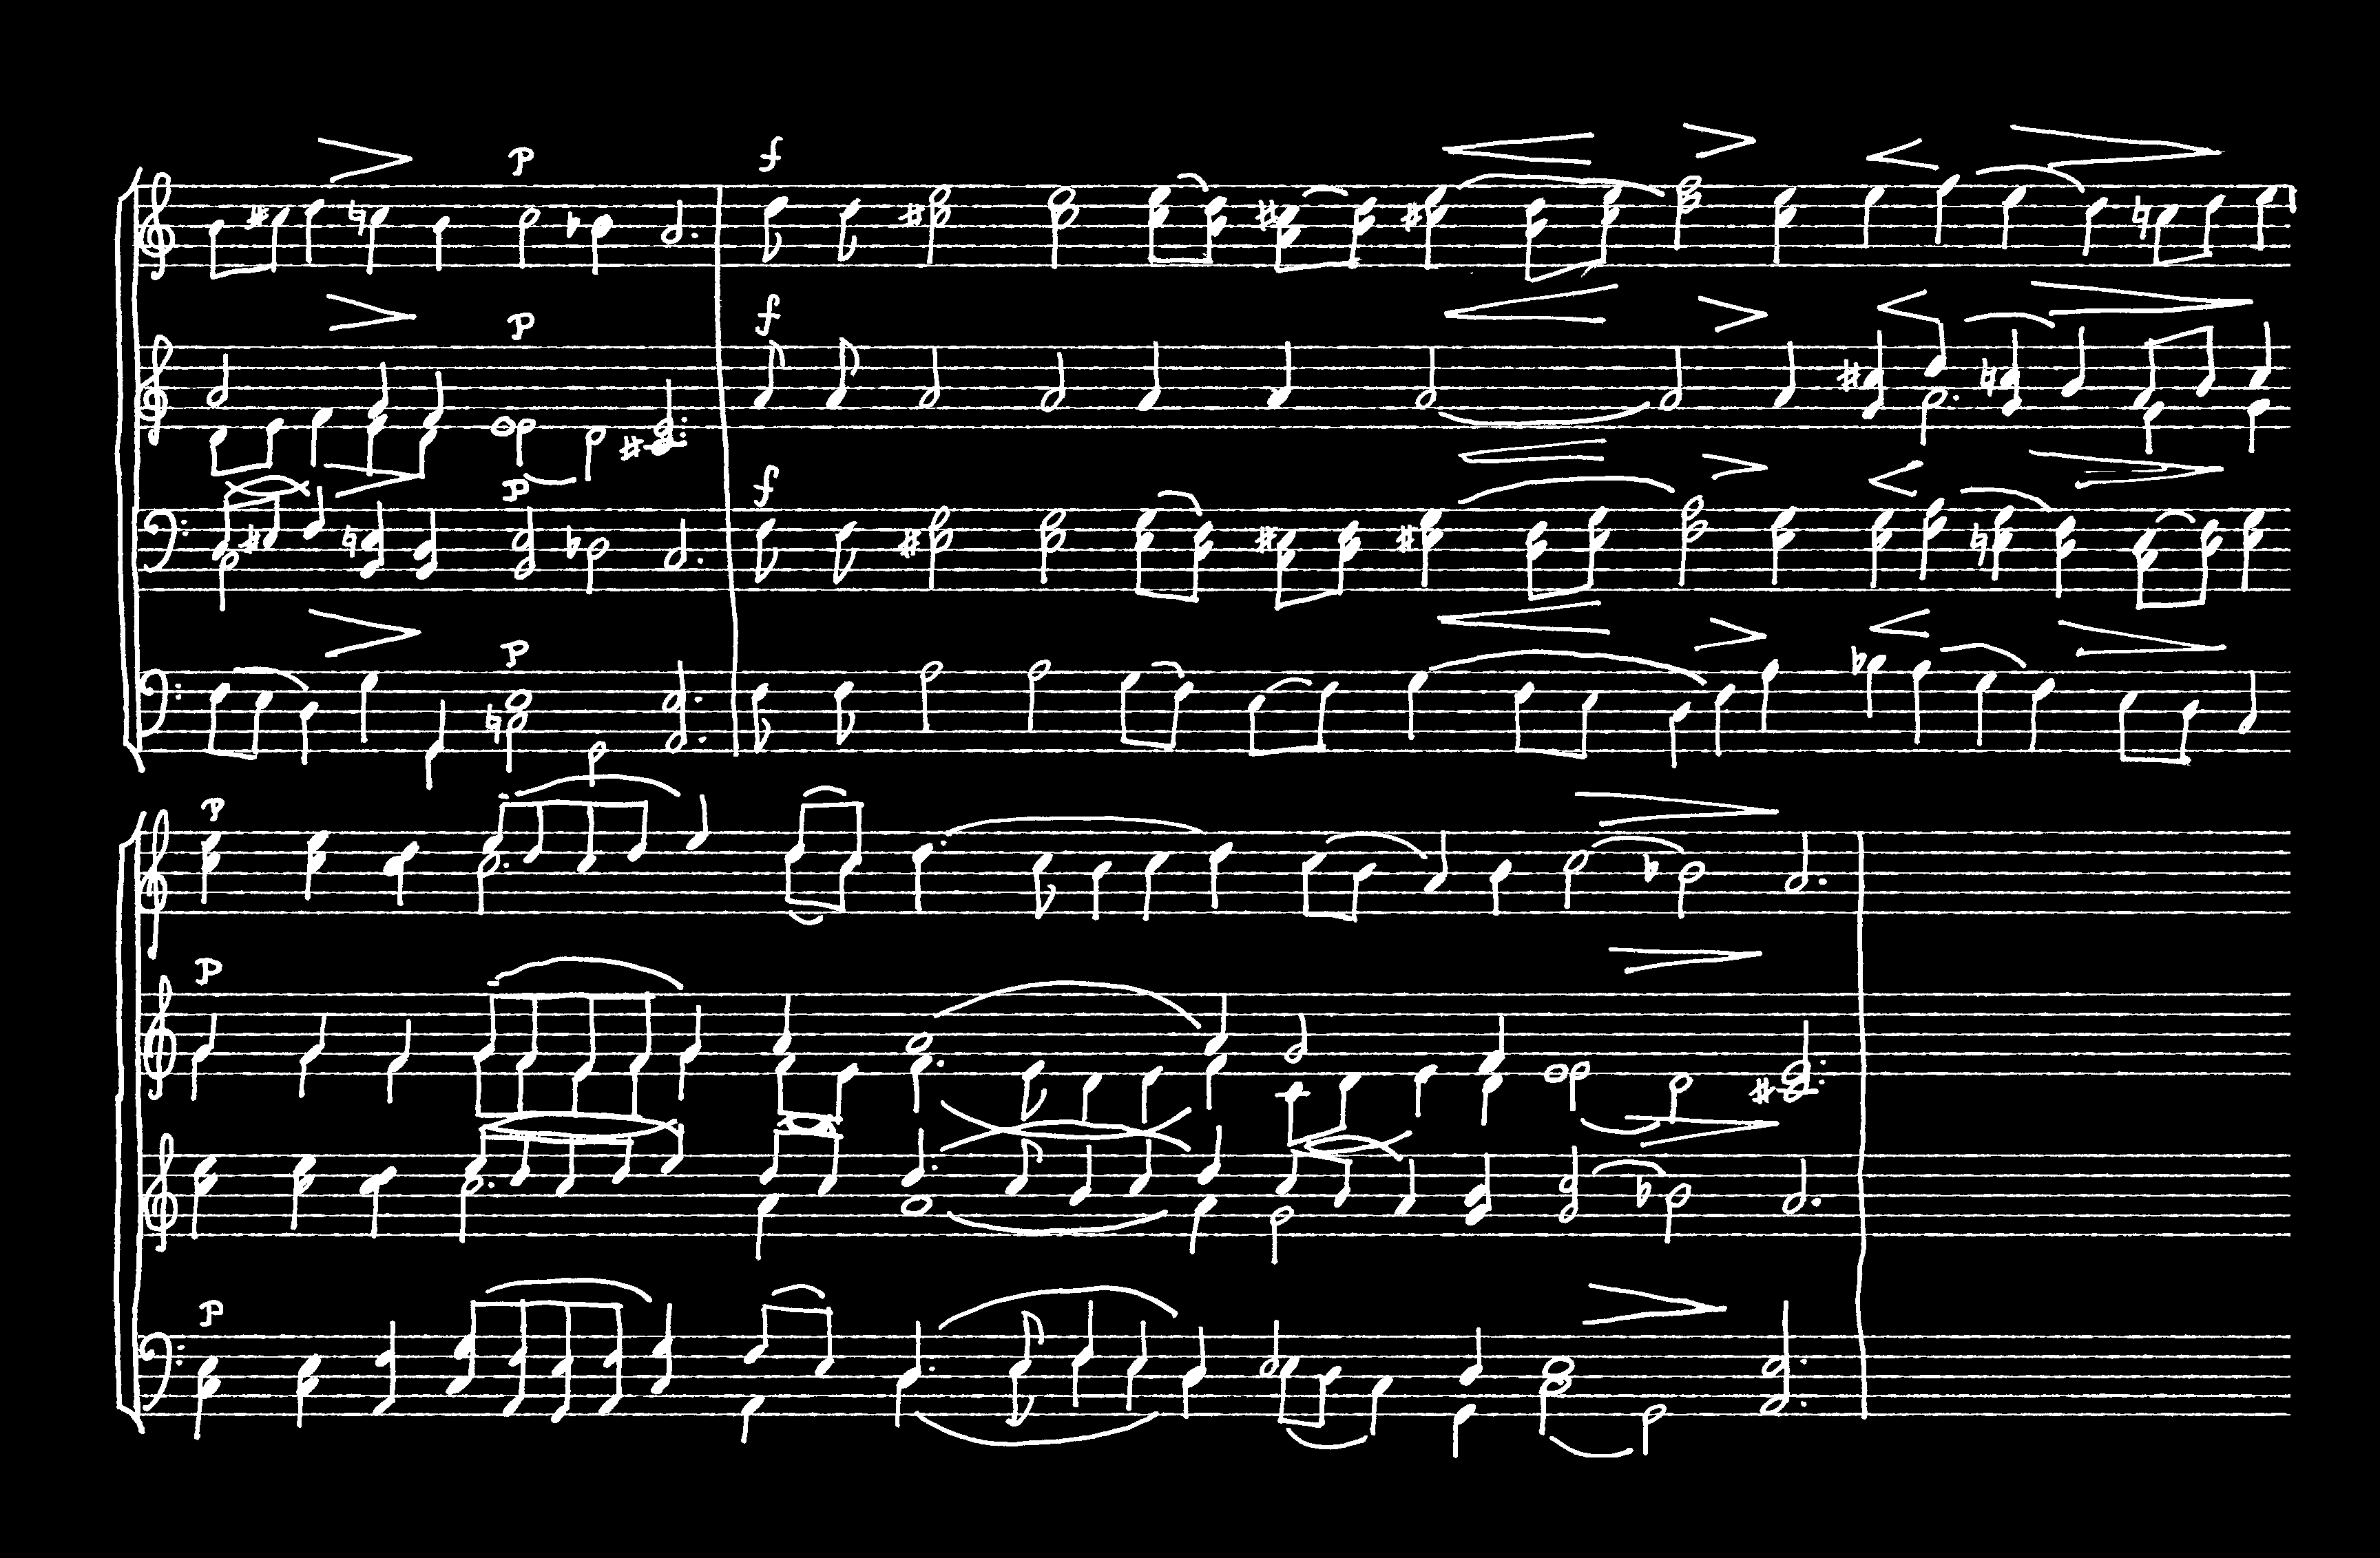 p
f
p
f
p
f
p
p
p
p